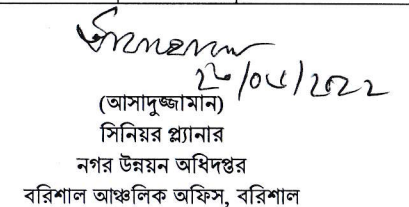 (আসাদুজ্জামান)
সিনিয়র প্ল্যানার
নগর উন্নয়ন অধিদপ্তর
বরিশাল আঞ্চলিক অফিস, বরিশাল